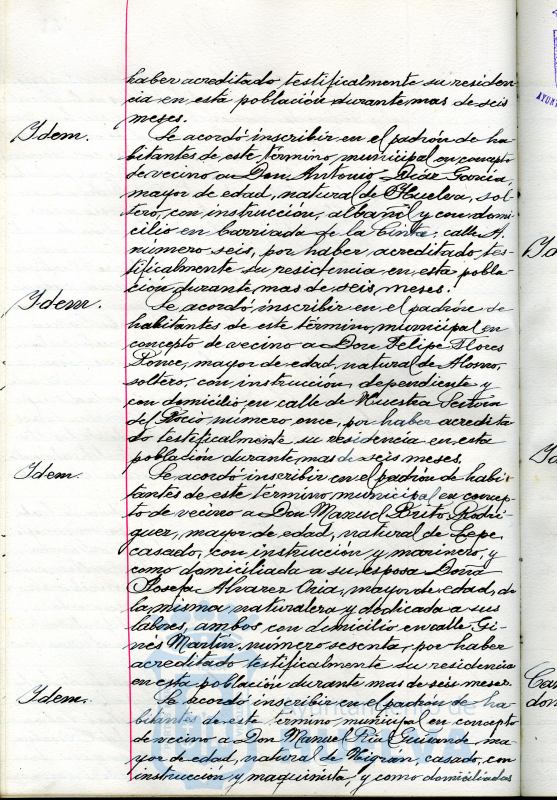 haber acreditado testificalmente su residen
cia en esta población durante mas de seis
meses.
Idem.
Se acordó inscribir en el padrón de ha
bitantes de este término municipal en concepto
de vecino a Don Antonio Diaz García,
mayor de edad, natural de Huelva, sol
tero, con instrucción, albañil y con domi
cilio en barriada de la Cinta, calle A.
número seis, por haber acreditado tes
tificalmente su residencia en esta pobla
cion durante mas de seis meses.
Idem.
Se acordó inscribir en el padrón de
habitantes de este término municipal en
concepto de vecino a Don Felipe Flores
Ponce, mayor de edad, natural de Alosno,
soltero, con instrucción, dependiente y
con domicilio en calle de Nuestra Señora
del Rocio, número once, por haber acredita
do testificalmente su residencia en esta
población durante mas de seis meses.
Idem.
Se acordó inscribir en el padrón de habi
tantes de este término municipal en concep
to de vecino a Don Manuel Brito Rodrí
guez, mayor de edad, natural de Lepe,
casado, con instrucción y marinero, y
como domiciliada a su esposa Doña
Josefa Alvarez Oria, mayor de edad, de
la misma naturaleza y dedicada a sus
labores, ambos con domicilio en calle Gi
nés Martín, número sesenta, por haber
acreditado testificalmente su residencia
en esta población durante mas de seis meses.
Idem.
Se acordó inscribir en el padrón de ha
bitantes de este término municipal en concepto
de vecino a Don Manuel Rial Guisande, ma
yor de edad, natural de Nigran, casado, con
instrucción y maquinista, y como domiciliadas
Ayuntamiento de